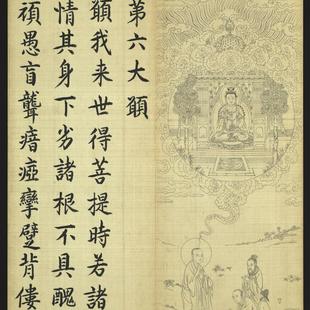 第六大願
願我来世得菩提時若諸
情其身下劣諸根不具醜
頑愚盲聾瘖瘂攣躄背僂